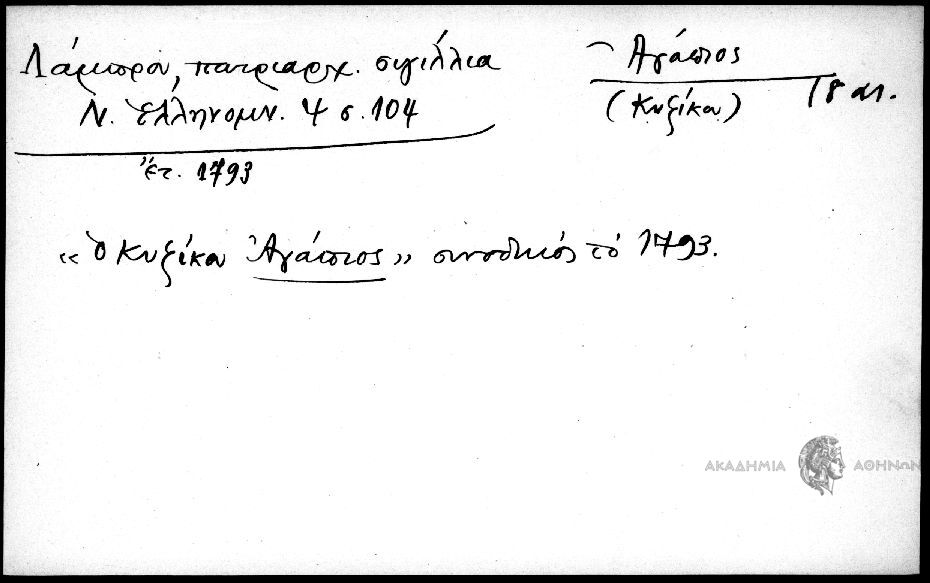 Λάμπρου, πατριαρχ. σιγίλλια
Ν. Ἑλληνομν. 4 σ. 104
ἔτ. 1793
Ἀγάπιος
(Κυζίκου)
18 αι.
«ὁ Κυζίκου Ἀγάπιος» συνοδικός τό 1793.
ΑΚΑΔΗΜΙΑ ΑΘΗΝΩΝ